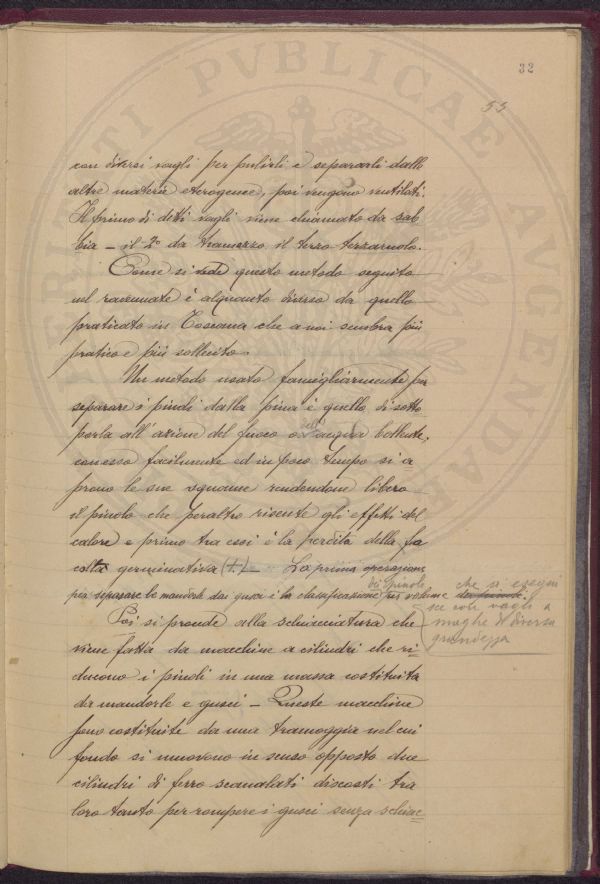 32
55
con diversi vagli per pulirli e separarli dalle
altre materie eterogenee, poi vengono ventilati.
Il primo di detti vagli viene chiamato da sab
bia – il 2° da tramezzo il terzo terzaruolo.
Come si vede questo metodo seguito
nel ravennate è alquanto diverso da quello
praticato in Toscana che a noi sembra più
pratico e più sollecito.
Un metodo usato famigliarmente per
separare i pinoli dalla pina è quello di sotto
porla all'azione del fuoco o nell'acqua bollente,
con esso facilmente ed in poco tempo si a
prono le sue squame rendendone libero
il pinolo che peraltro risente gli effetti del
calore e primo tra essi è la perdita della fa
coltà germinativa (+) – La prima operazione
per separare le mandorle dai gusci è la classificazione per volume dei pinoli che si esegui
sce con vagli a
maglie di diversa
grandezza
Poi si procede alla schiacciatura che
viene fatta da macchine a cilindri che ri
ducono i pinoli in una massa costituita
da mandorle e gusci – Queste macchine
sono costituite da una tramoggia nel cui
fondo si muovono in senso opposto due
cilindri di ferro scanalati discosti tra
loro tanto per rompere i gusci senza schiac
PERITI PVBLICAE VGENDAE